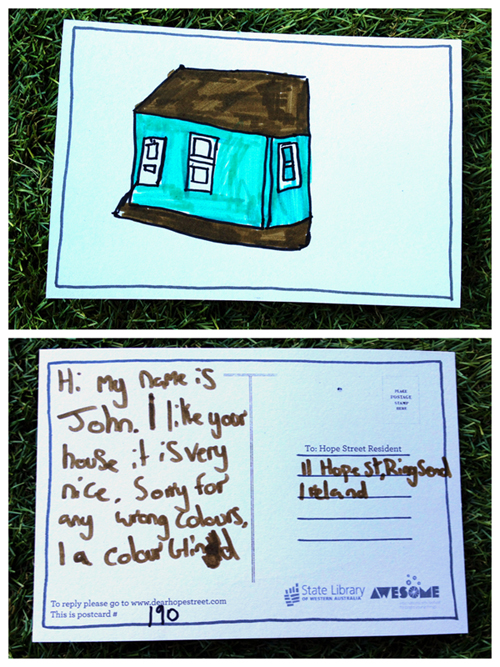 Hi my name is
John. I like your
house it is very
nice. Sorry for
any wrong colours,
I a colour blind
PLACE
POSTAGE
STAMP
HERE
To: Hope Street Resident
11 Hope St, Ringsend
Ireland
To reply please go to www.dearhopestreet.com
This is postcard # 190
State Library
OF WESTERN AUSTRALIA
AWESOME